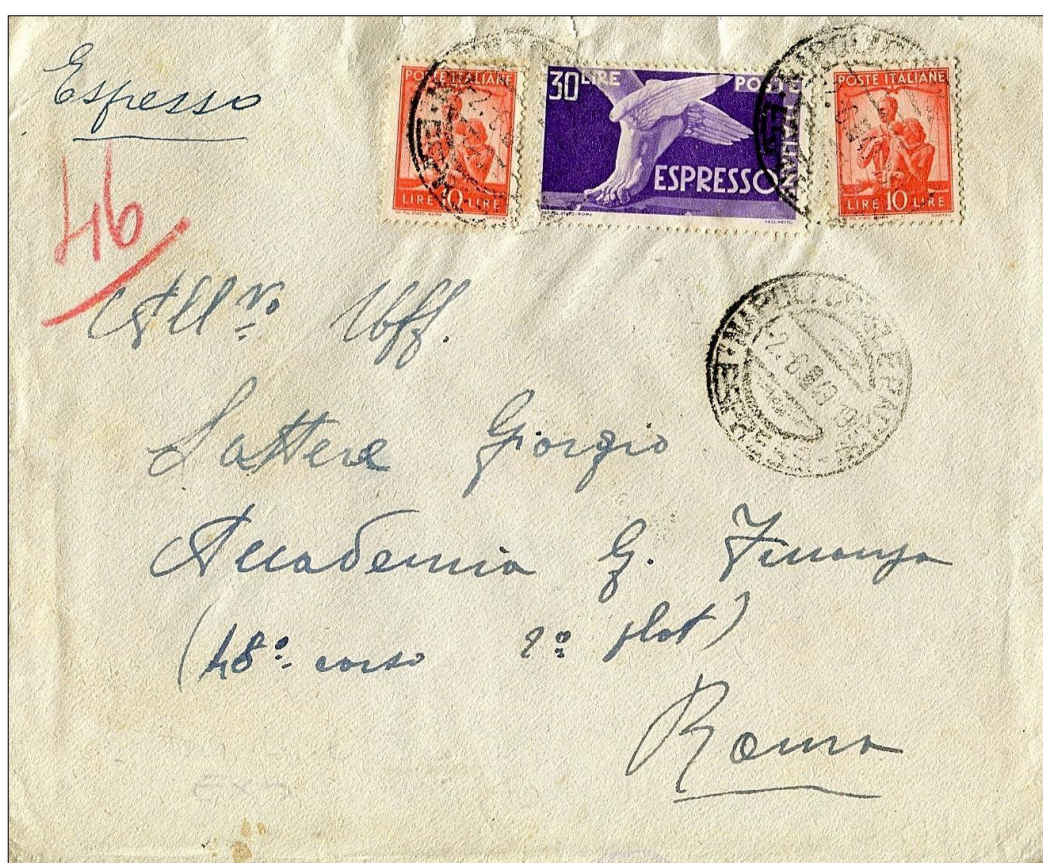 Espresso
POSTE ITALIANE
LIRE 10 LIRE
30 LIRE
POSTE ITALIANE
ESPRESSO
POSTE ITALIANE
LIRE 10 LIRE
46
All vo Uff.
Lattere Giorgio
Accademia G. Finanza
(48º corso 2º plot)
Roma